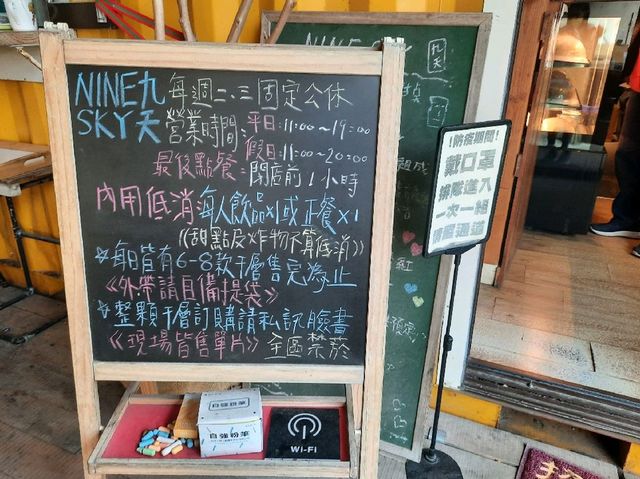 NINE九
SKY天
每週二、三固定公休
營業時間:平日:11:00~19:00
假日:11:00~20:00
最後點餐:閉店前1小時
內用低消每人飲品x1或正餐x1
《甜點及炸物不算低消》
*每日皆有6-8款千層售完為止
《外帶請自備提袋》
*整顆千層訂購請私訊臉書
《現場皆售單片》全區禁菸
自強粉筆
自強粉筆
Wi-Fi
NINE SKY
九天
!防疫期間!
戴口罩
排隊進入
一次一組